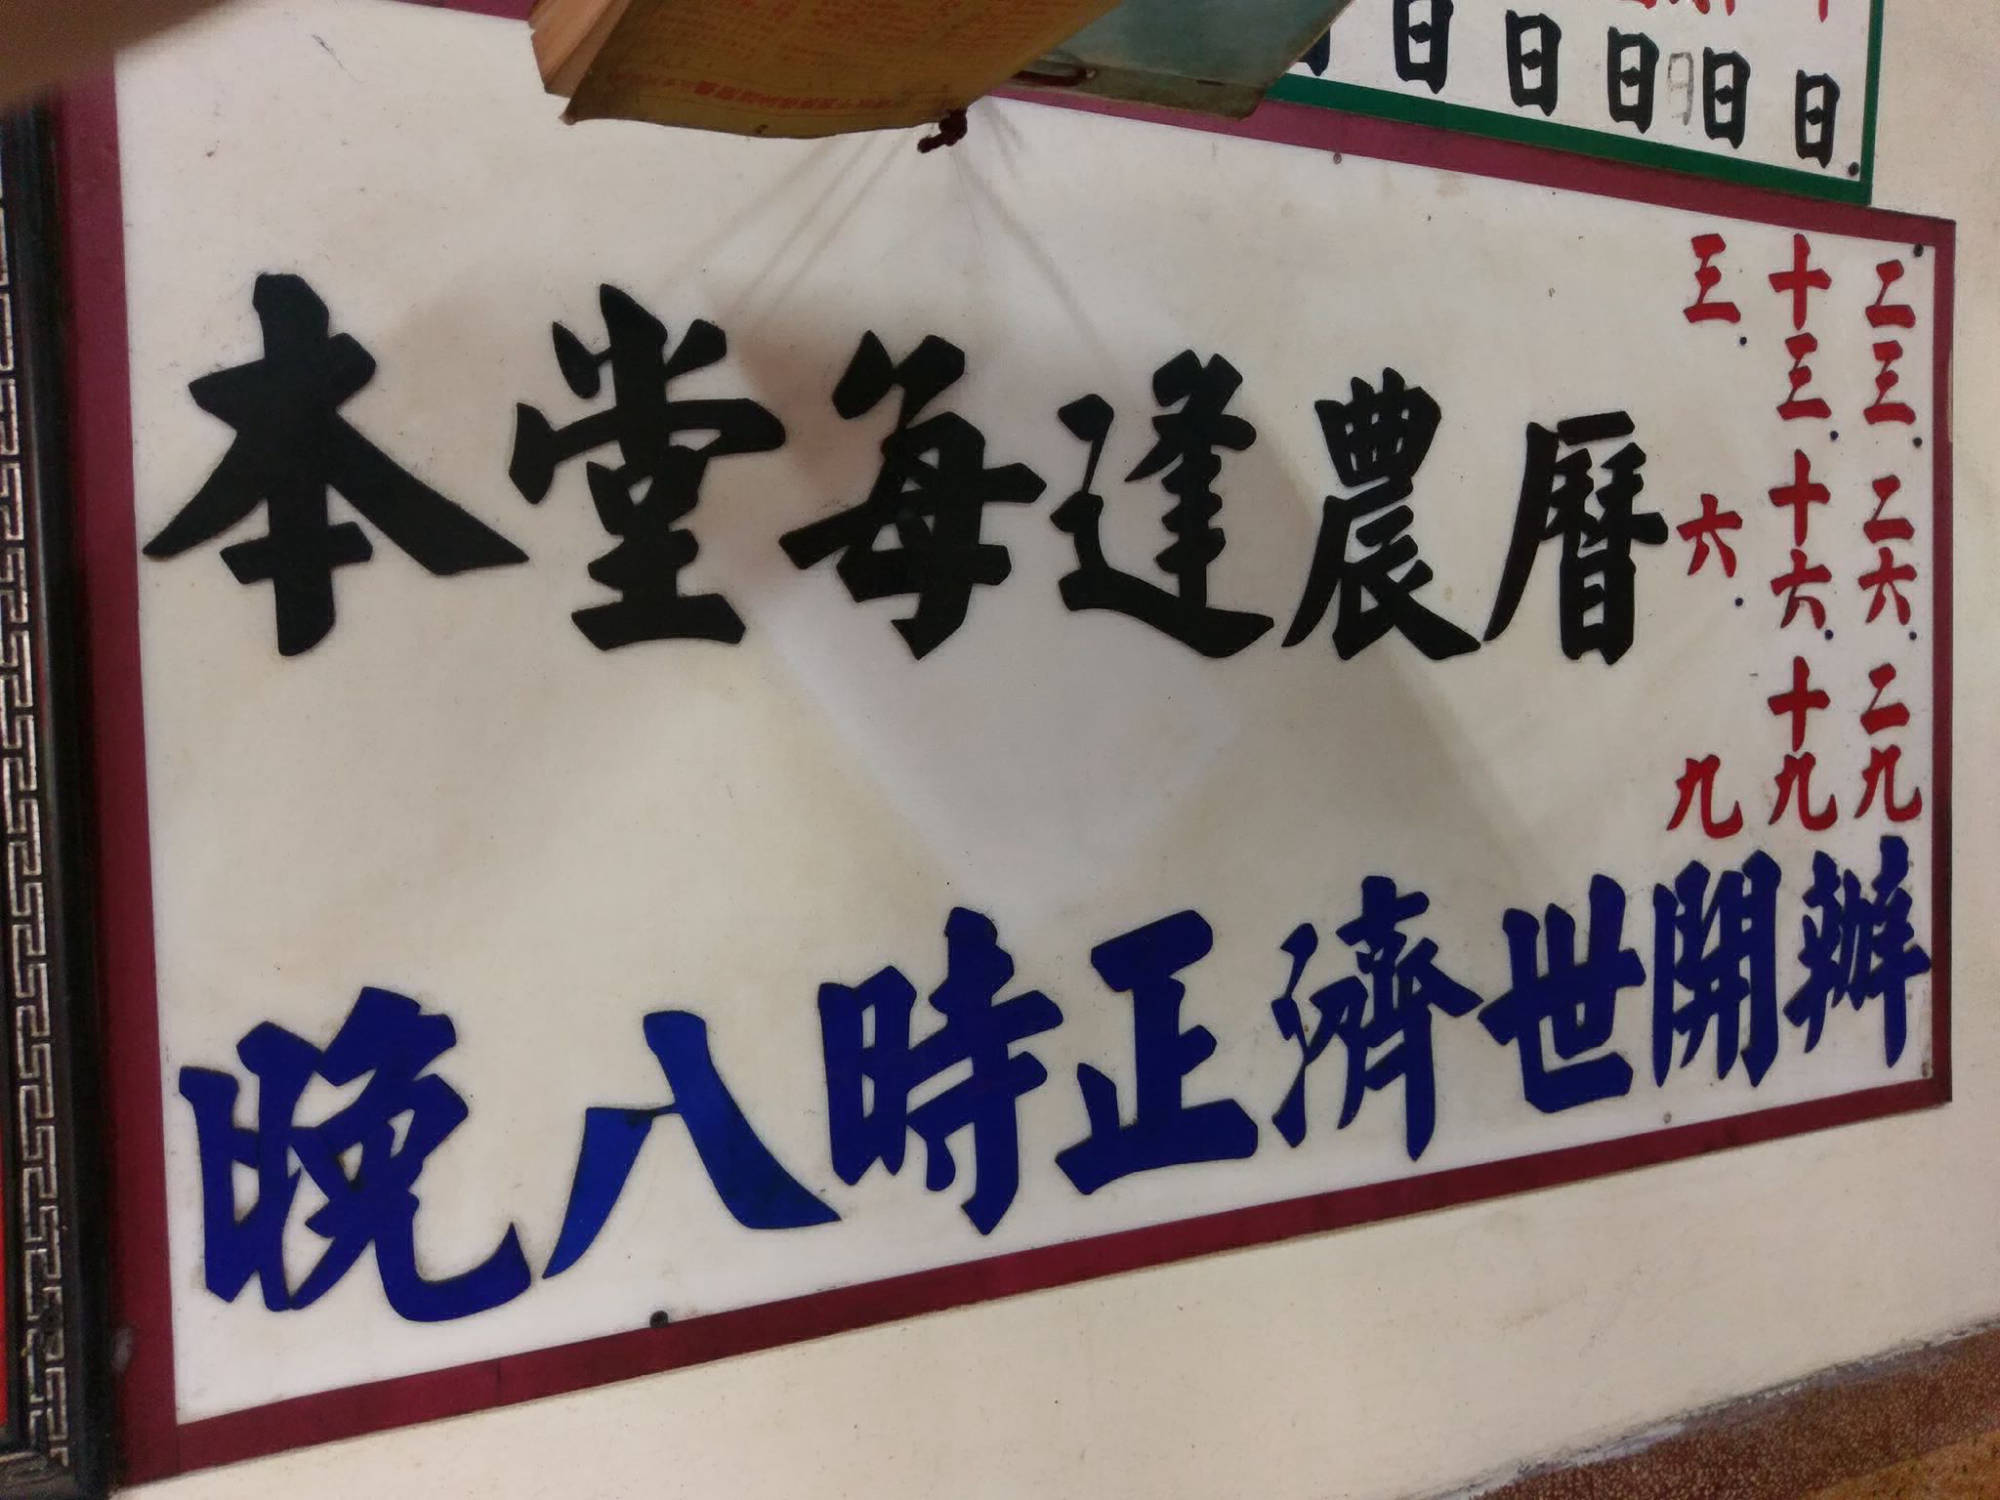 日日日日日
本堂每逢農曆
三.六.九
十三.十六.十九
二三.二六.二九
晚八時正濟世開辦